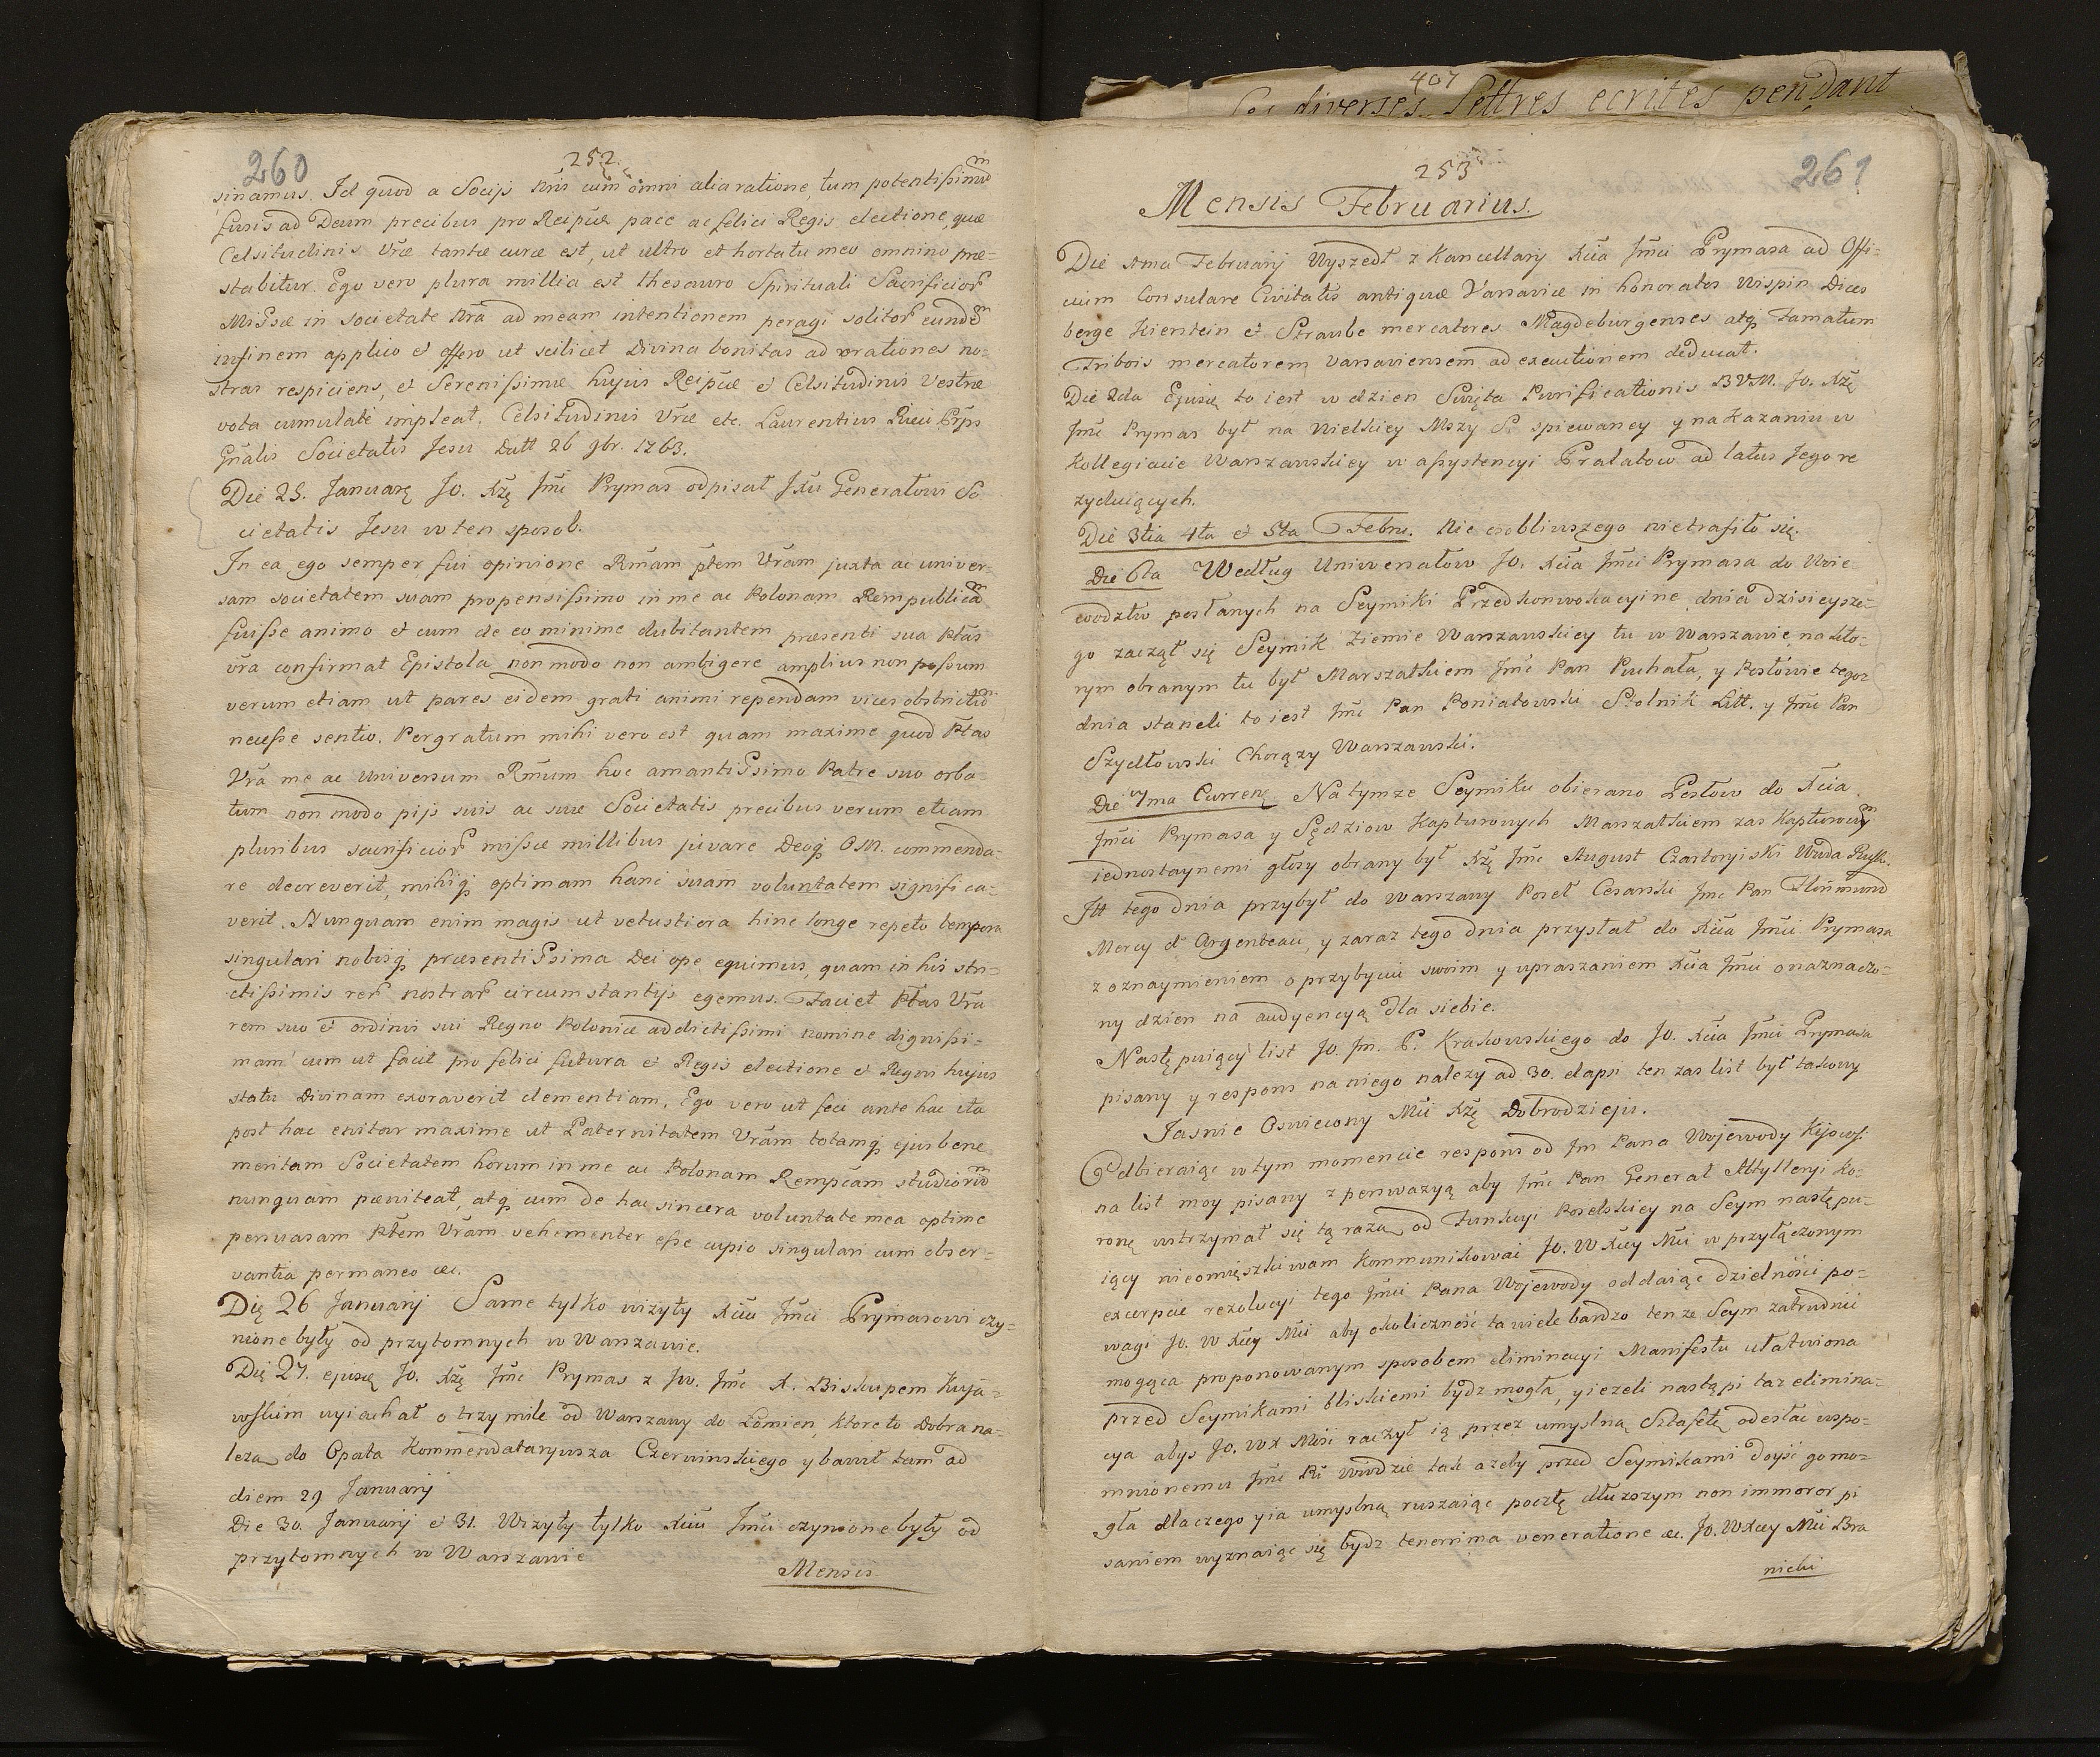 260
252.
sinamus. Id quod a Socijs nris cum omni alia ratione tum potentissimum
fusis ad Deum precibus pro Reipcæ pace ac felici Regis electione, quæ
Celsitudinis Vræ tantæ curæ est, ut ultro et hortatu meo omnino præ-
stabitur. Ego vero plura millia est thesauro Spirituali Sacrificior
Missæ in societate nra ad meam intentionem peragi solitor eundem
infinem applico et offero ut scilicet Divina bonitas ad orationes no-
stras respiciens, et Serenissimæ hujus Reipcæ et Celsitudinis Vestræ
vota cumulate impleat. Celsitudinis Vræ etc. Laurentius Ricci Prps
Gnalis Societatis Jesu Datt 26 9br. 1763.
Die 25. Januarę Jo. Xżę Jmć Prymas odpisał JXu Generałowi So
cietatis Jesu w ten sposob.
In ea ego semper fui opinione Rmam ptem Vram juxta ac univer-
sam societatem suam propensissimo in me ac Polonam Rempublicam
fuisse animo et cum de eo minime dubitantem præsenti sua Ptas
vra confirmat Epistola non modo non ambigere amplius non possum
verum etiam ut pares eidem grati animi rependam vices obstrictum
necesse sentio. Pergratum mihi vero est quam maxime quod Ptas
Vra me ac Universum Rmum hoc amantissimo Patre suo orba-
tum non modo pijs suis ac suæ Societatis precibus verum etiam
pluribus sacrificior missæ millibus juvare Deoq OM. commenda-
re decreverit, mihiq optimam hanc suam voluntatem significa-
verit. Nunquam enim magis ut vetustiora hinc longe repeto tempora
singulari nobisq præsentissima Dei ope eguimus, quam in his stri-
ctissimis rer nostrar circumstantijs egemus. Faciet Ptas Vra
rem suo et ordinis sui Regno Poloniæ addictissimi nomine dignissi-
mam cum ut facit pro felici futura et Regis electione et Regni hujus
statu Divinam exoraverit clementiam. Ego vero ut feci ante hac ita
post hac enitar maxime ut Paternitatem Vram totamq ejus bene
meritam Societatem horum in me ac Polonam Rempcam studiorum
nunquam pæniteat, atq cum de hac sincera voluntate mea optime
persuasam Ptem Vram vehementer esse cupio singulari cum obser-
vantia permaneo &c.
Die 26 Januarij Same tylko wizyty Xciu Jmci Prymasowi czy-
nione były od przytomnych w Warszawie.
Die 27. ejusę Jo. Xżę Jmć Prymas z Jw. Jmć X. Biskupem Kuja-
wskim wyiachał o trzy mile od Warszawy do Łomien, ktore to Dobra na-
leżą do Opata Kommendataryusza Czerwinskiego y bawił tam ad
diem 29 Januarij
Die 30. Januarij et 31. Wizyty tylko Xciu Jmci czynione były od
przytomnych w Warszawie
Mensis
407
les diverses Lettres ecrites pendant
253
261
Mensis Februarius.
Die 1ma Februarij Wyszedł z Kancellaryi Xcia Jmci Prymasa ad Offi-
cium Consulare Civitatis antiquæ Varsaviæ in honoratos Wispin Dices
berge Kienstein et Straube mercatores Magdeburgenses atq Famatum
Fribois mercatorem Varsaviensem ad executionem deducat.
Die 2da Ejusę to iest w dzien Swięta Purificationis BVM. Jo. Xżę
Jmć Prymas był na Wielkiey Mszy S. spiewaney y na Kazaniu w
Kollegiacie Warszawskiey w assystencyi Prałatow ad latus Jego re
zyduiących.
Die 3tia 4ta et 5ta Febru. Nic osobliwszego nie trafiło się.
Die 6ta Według Uniwersałow Jo. Xcia Jmci Prymasa do Woie
wodztw posłanych na Seymiki Przedkonwokacyine dnia dzisieysze-
go zaczął się Seymik Ziemie Warszawskiey tu w Warszawie na kto-
rym obranym tu był Marszałkiem Jmć Pan Puchała, y Posłowie tegoż
dnia staneli to iest Jmć Pan Poniatowski Stolnik Litt. y Jmć Pan
Szydłowski Chorąży Warszawski.
Die 7ma Currenę Na tymże Seymiku obierano Posłow do Xcia
Jmci Prymasa y Sędziow Kapturowych Marszałkiem zaś Kapturowym
iednostaynemi głosy obrany był Xżę Jmć August Czartoryiski Wwda Rusk.
Itt tego dnia przybył do Warszawy Poseł Cesarski Jmć Pan Florimund
Mercy d'Argenteau, y zaraz tego dnia przysłał do Xcia Jmci Prymasa
z oznaymieniem o przybyciu swoim y upraszaniem Xcia Jmci o naznaczo-
ny dzien na audyencyą dla siebie.
Następuiący list Jo. Jm. P. Krakowskiego do Jo. Xcia Jmci Prymasa
pisany y respons na niego nalezy ad 30. elaps ten zas list był takowy
Jasnie Oswiecony Mci Xżę Dobrodzieju.
Odbieraiąc w tym momencie respons od Jm Pana Wojewody Kijows.
na list moy pisany z perswazyą aby Jmć Pan Generał Artylleryi Ko-
ronę wstrzymał się tą razą od Funkcyi Poselskiey na Seym następu-
iący nieomięszkiwam Kommunikować Jo. W Xcey Mci w przyłączonym
excerpcie rezolucyi tego Jmci Pana Wojewody oddaiąc dzielności po-
wagi Jo. W Xcey Mci aby okoliczność ta wiele bardzo tenże Seym zatrudnić
mogąca proponowanym sposobem eliminacyi Manifestu ułatwiona
przed Seymikami bliskiemi bydź mogła, y ieżeli nastąpi taż elimina-
cya abyś Jo. WX Mść raczył ią przez umyslną Sztafetę odesłać wspo-
mnionemu Jmć Pu Wwdzie tak ażeby przed Seymikami doyść go mo-
gła dlaczego y ia umyslną ruszaiąc pocztę dłuższym non immoror pi
saniem wyznaiąc się bydź tenerrima veneratione &c. Jo. WXcey Mci Bra
nicki